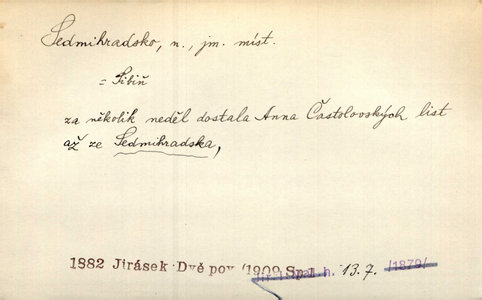 Sedmihradsko, n., jm. míst.
= Sibiň
za několik neděl dostala Anna Častolovských list
až ze Sedmihradska,
1882 Jirásek Dvě pov /1909 Spal. h. 13.7. /1879/